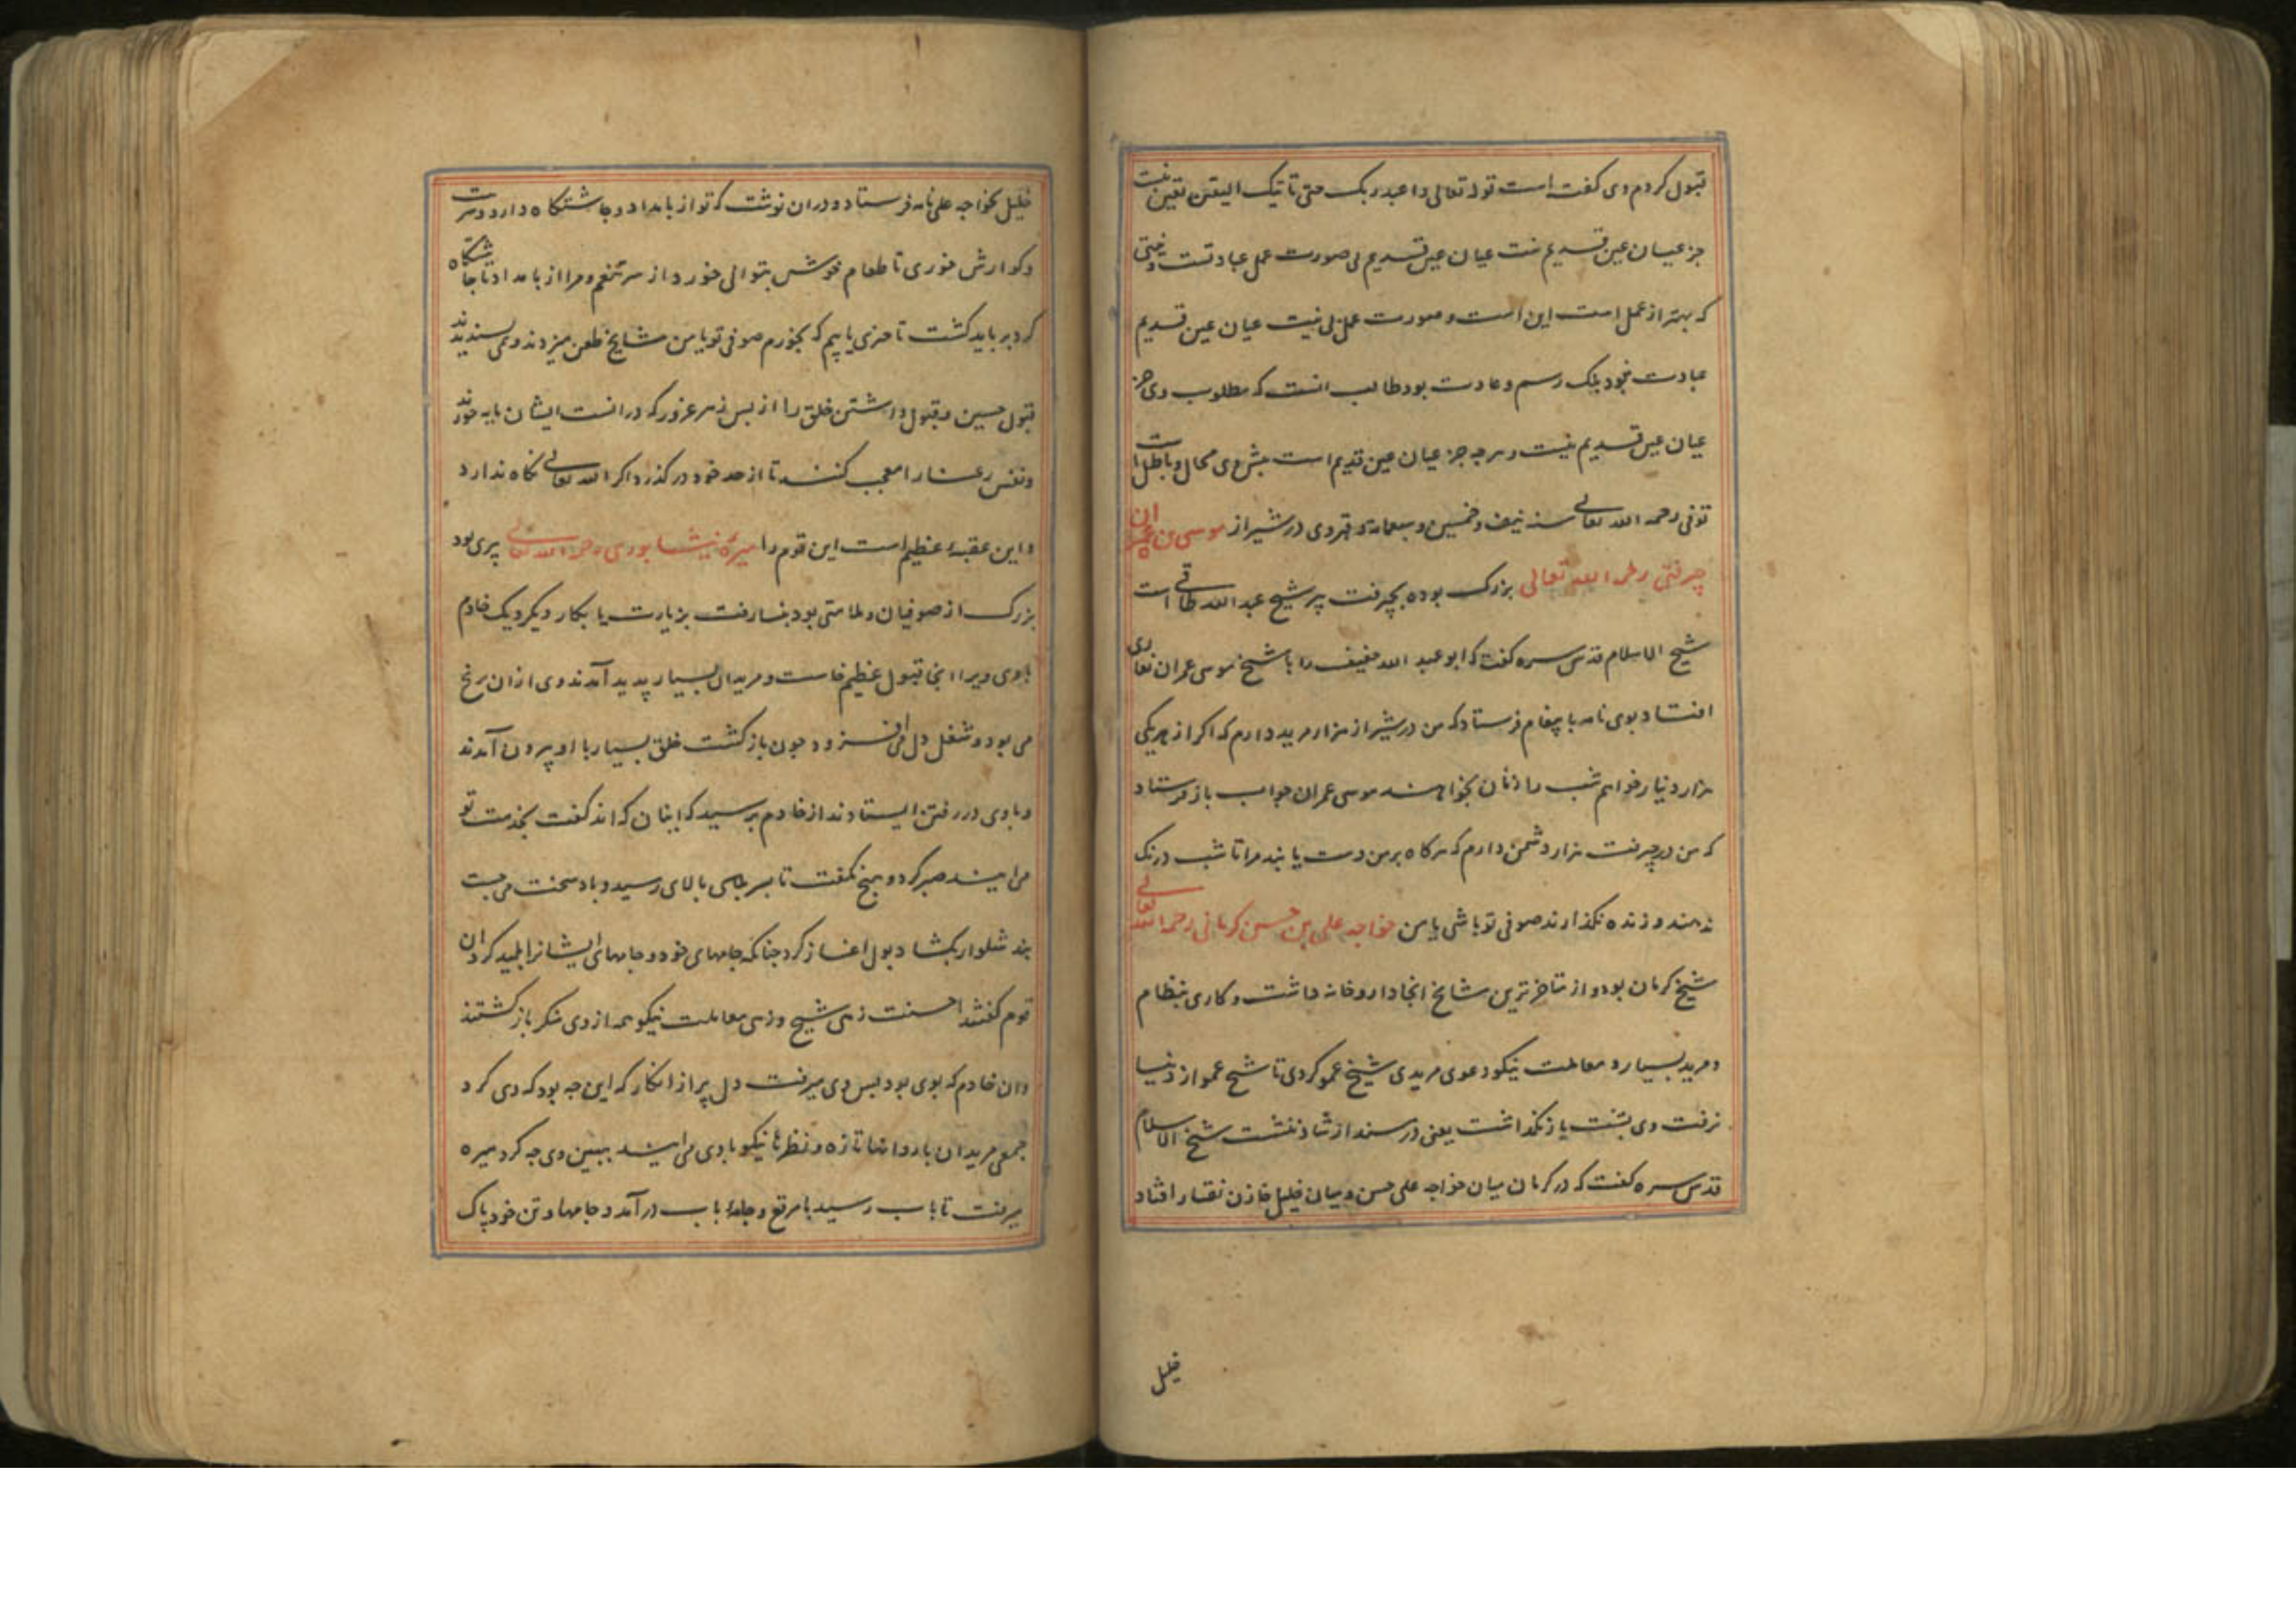 قبول کردم وی گفته است قوله تعالی واعبد ربک حتی یاتیک الیقین یقین نیست
جز عیان عین قدیم نیت عیان عین قدیم بی صورت عمل عبادتست ونیتی
که بهتر از عمل است این است وصورت عمل بی نیت عیان عین قدیم
عبادت نبود بلک رسم وعادت بود طالب انست که مطلوب وی جز
عیان عین قدیم نیست وهرچه جز عیان عین قدیم است پیش وی محال وباطل است
توفی رحمه الله تعالی سنه نیف وخمسین وسبعمائه وقبر وی در شیراز موسی بن عمران
جیرفتی رحمه الله تعالی بزرک بوده بجیرفت پیر شیخ عبدالله طاقی است
شیخ الاسلام قدس سره کفت که ابو عبد الله خفیف را با شیخ موسی عمران نقاری
افتاد بوی نامه با پیغام فرستاد که من در شیراز هزار مرید دارم که اکر از هریکی
هزار دینار خواهم شب را زمان نخواهند موسی عمران جواب باز فرستاد
که من در جیرفت هزار دشمن دارم که هرکاه بر من دست یابند مرا تا شب درنک
ندهند وزنده نکذارند صوفی تو باشی یا من خواجه علی بن حسن کرمانی رحمه الله تعالی
شیخ کرمان بود واز متاخرترین مشایخ انجا داروخانه داشت وکاری بنظام
ومرید بسیار ومعاملت نیکو دعوی مریدی شیخ عمو کردی تا شیخ عمو از دنیا
نرفت وی پشت باز نکذاشت یعنی در مسند ارشاد ننشست شیخ الاسلام
قدس سره کفت که در کرمان میان خواجه علی حسن ومیان خلیل خازن نقار افتاد
خلیل
خلیل بخواجه علی نامه فرستاد ودران نوشت که تو از بامداد وچاشتکاه دارو وشربت
وکوارش خوری تا طعام خوش بتوانی خورد از سر تنعم ومرا از بامداد تا چاشتکاه
کرد بر باید کشت تا چیزی یابیم که بخورم صوفی تو یا من مشایخ طعن میزدند ونمی پسندیدند
قبول حسین وقبول داشتن خلق را از بس زهر غرور که درانست ایشان بایه خورند
ونفس رعنا را معجب کنند تا از حد خود در کذرد اکر الله تعالی نکاه ندارد
واین عقبهٔ عظیم است این قوم را میرهٔ نیشابوری رحمه الله تعالی پیری بود
بزرک از صوفیان وملامتی بود بنسا رفت بزیارت یا بکار دیکر ویک خادم
باوی ویرا انجا قبول عظیم خاست ومریدان بسیار پدید آمدند وی از ان رنج
می بود وشغل دل می افزود چون باز کشت خلق بسیار با او بیرون آمدند
وباوی در رفتن ایستادند از خادم پرسید که اینان که اند کفت بخدمت تو
می ایند صبر کرد وهیچ نکفت تا بسر جایی بالای رسید وباد سخت می جست
بند شلوار بکشاد بول اغاز کرد چنانکه جامهای خود وجامهای ایشانرا پلید کرد ان
قوم کفتند احسنت زهی شیخ وزهی معاملت نیکو همه از وی منکر باز کشتند
وان خادم که بوی بود پس وی میرفت دل پر از انکار که این چه بود که وی کرد
جمعی مریدان با روا تها تازه ونظرها نیکو باوی می ایند ببین وی چه کرد میره
میرفت تا باب رسید با مرقع وجامهٔ باب در آمد وجامها وتن خود پاک